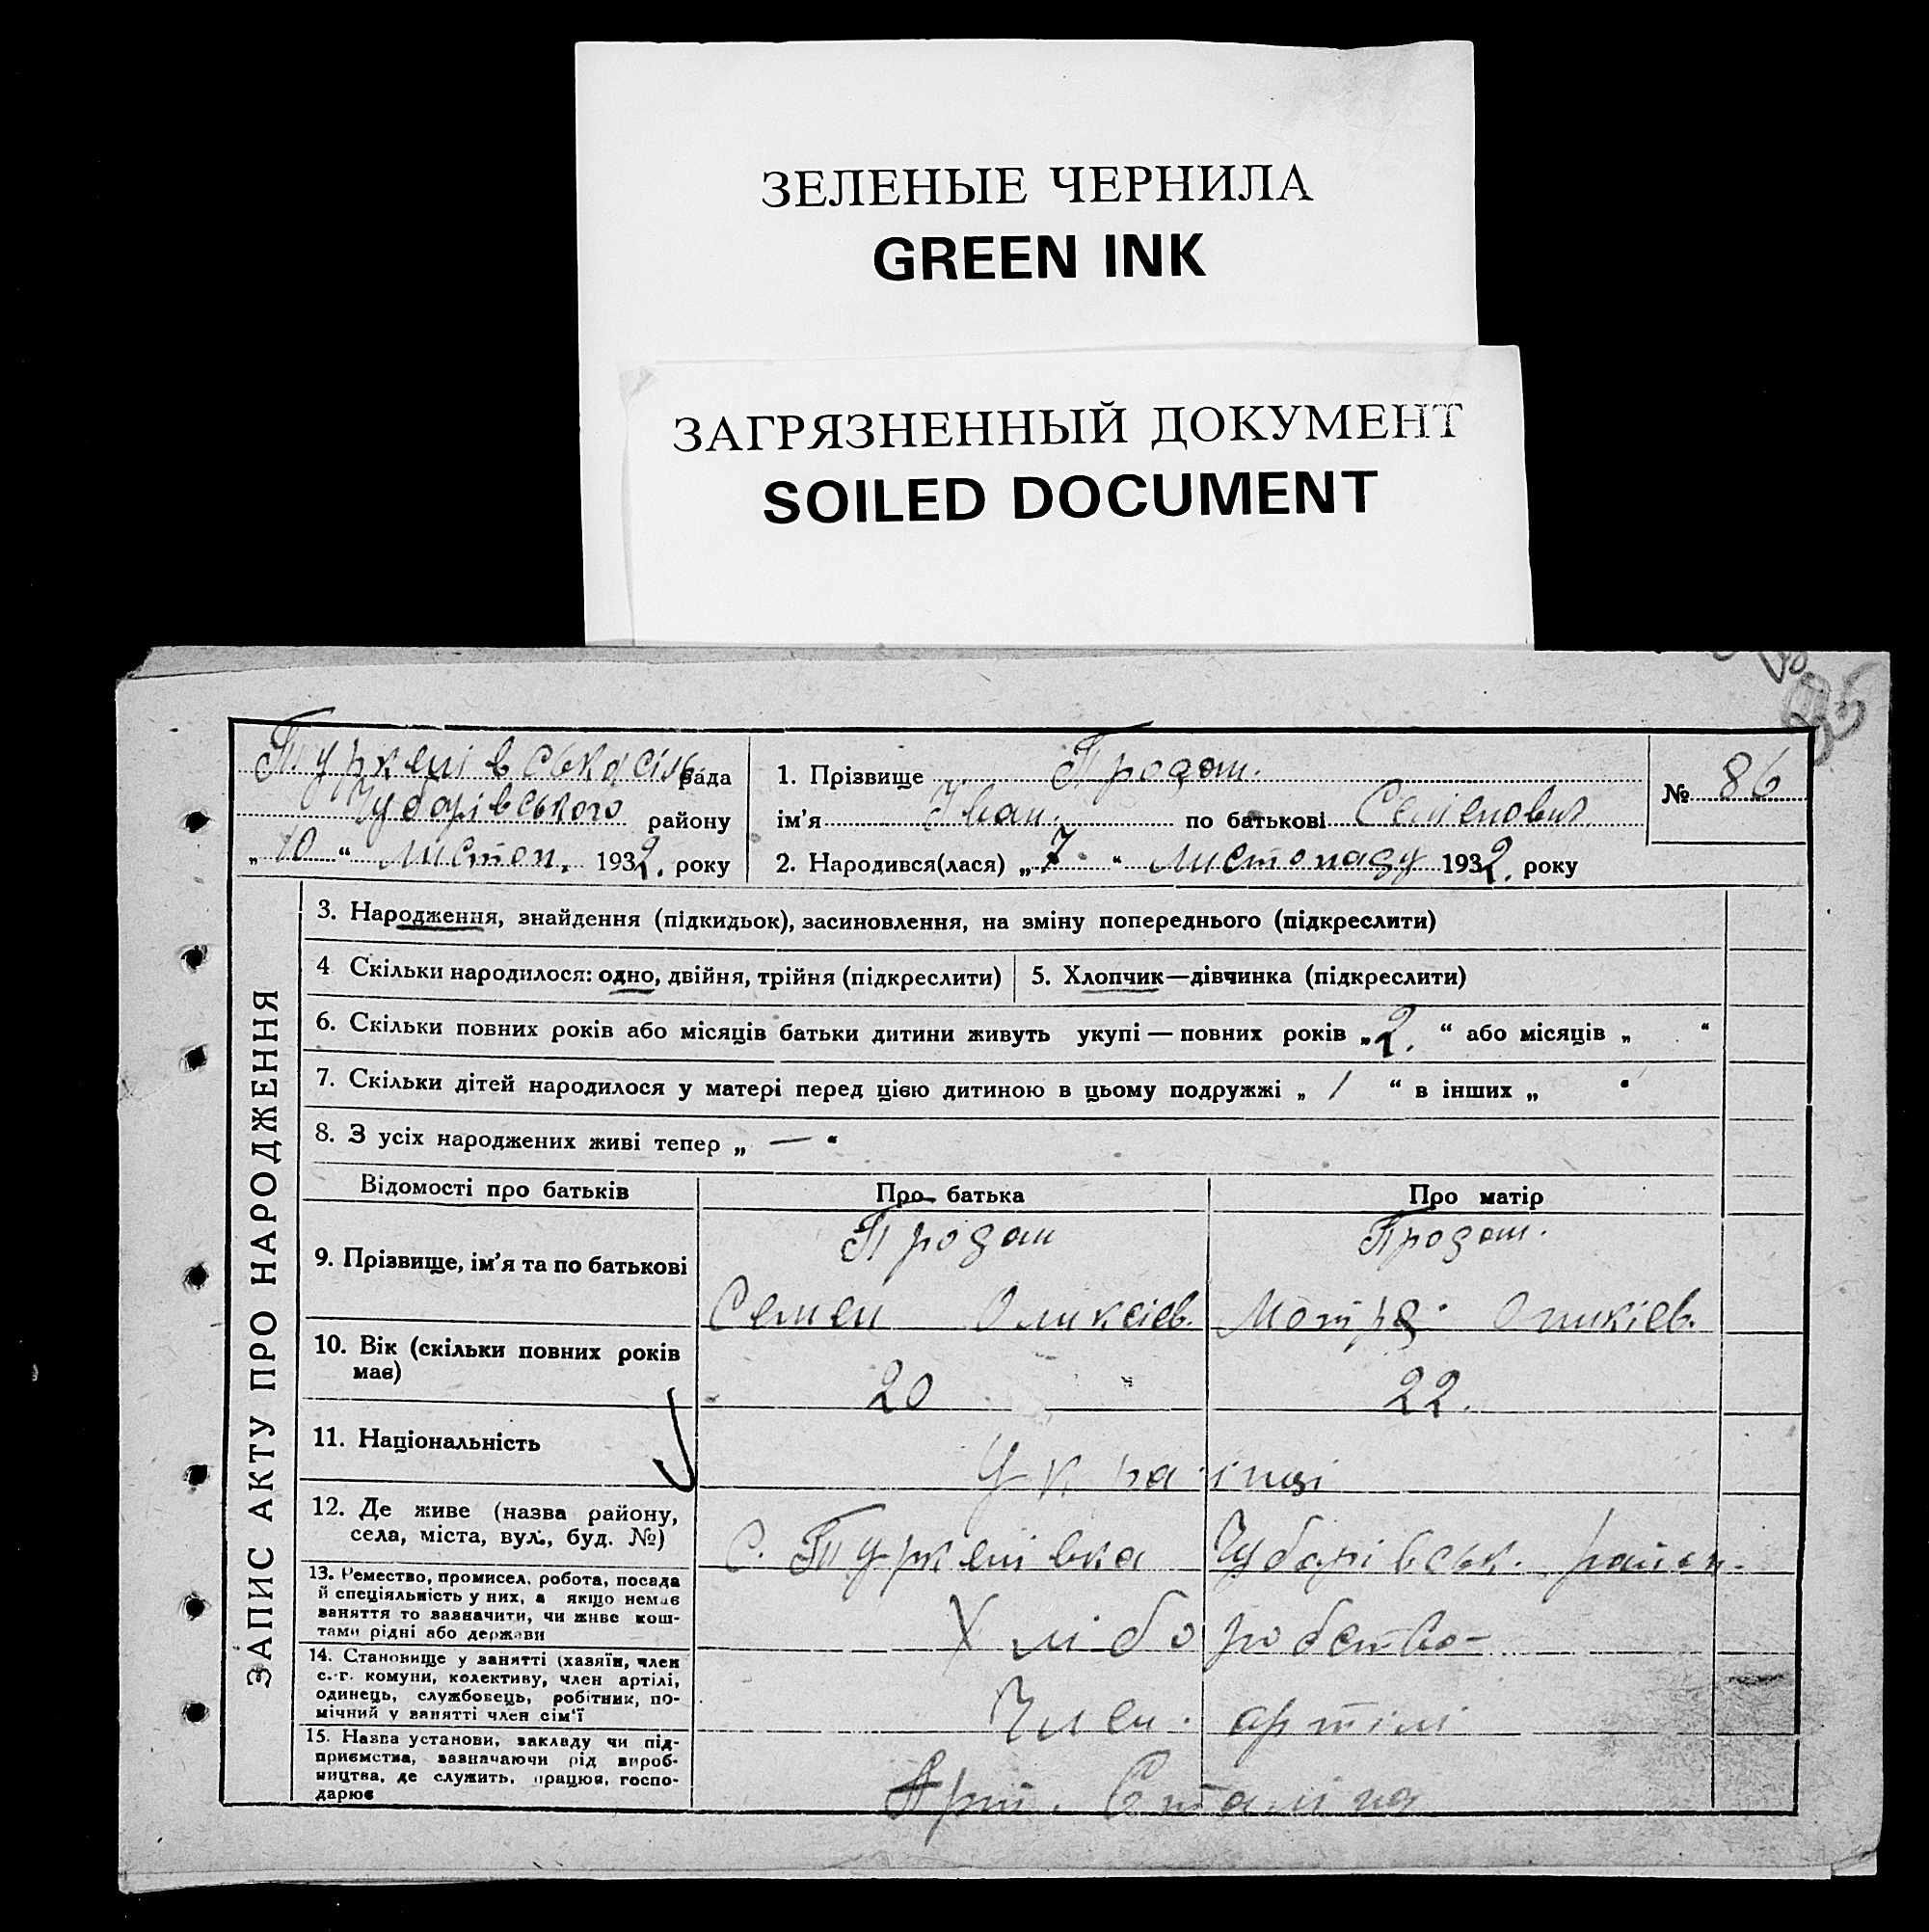 ЗЕЛЕНЫЕ ЧЕРНИЛА
GREEN INK
ЗАГРЯЗНЕННЫЙ ДОКУМЕНТ
SOILED DOCUMENT
ЗАПИС АКТУ ПРО НАРОДЖЕННЯ
Туркенівська сіль рада
Чубарівського району
„10“ листоп. 1932. року
1. Прізвище Продан.
ім'я Іван. по батькові Семенович
2. Народився(лася) „7.“ листопаду 1932. року
№ 86
3. Народження, знайдення (підкидьок), засиновлення, на зміну попереднього (підкреслити)
4 Скільки народилося: одно, двійня, трійня (підкреслити) 5. Хлопчик—дівчинка (підкреслити)
6. Скільки повних років або місяців батьки дитини живуть укупі — повних років „2.“ або місяців „ “
7. Скільки дітей народилося у матері перед цією дитиною в цьому подружжі „ 1 “ в інших „ “
8. З усіх народжених живі тепер „ — “
Відомості про батьків Про батька Про матір
9. Прізвище, ім'я та по батькові
Продан Продан.
Семен Мотря
10. Вік (скільки повних років має)
20 22.
11. Національність
Українці
12. Де живе (назва району, села, міста, вул., буд. №)
С. Туркенівка Чубарівськ. район.
13. Ремество, промисел, робота, посада
й спеціяльність у них, а якщо немає
заняття то зазначити, чи живе кош-
тами рідні або держави
Хліборобство
14. Становище у занятті (хазяїн, член
с.-г. комуни, колективу, член артілі,
одинець, службовець, робітник, по-
мічний у занятті член сім'ї
Член. артілі
15. Назва установи, закладу чи під-
приємства, зазначаючи рід вироб-
ництва, де служить, працює, госпо-
дарює
Арт. Сталіна